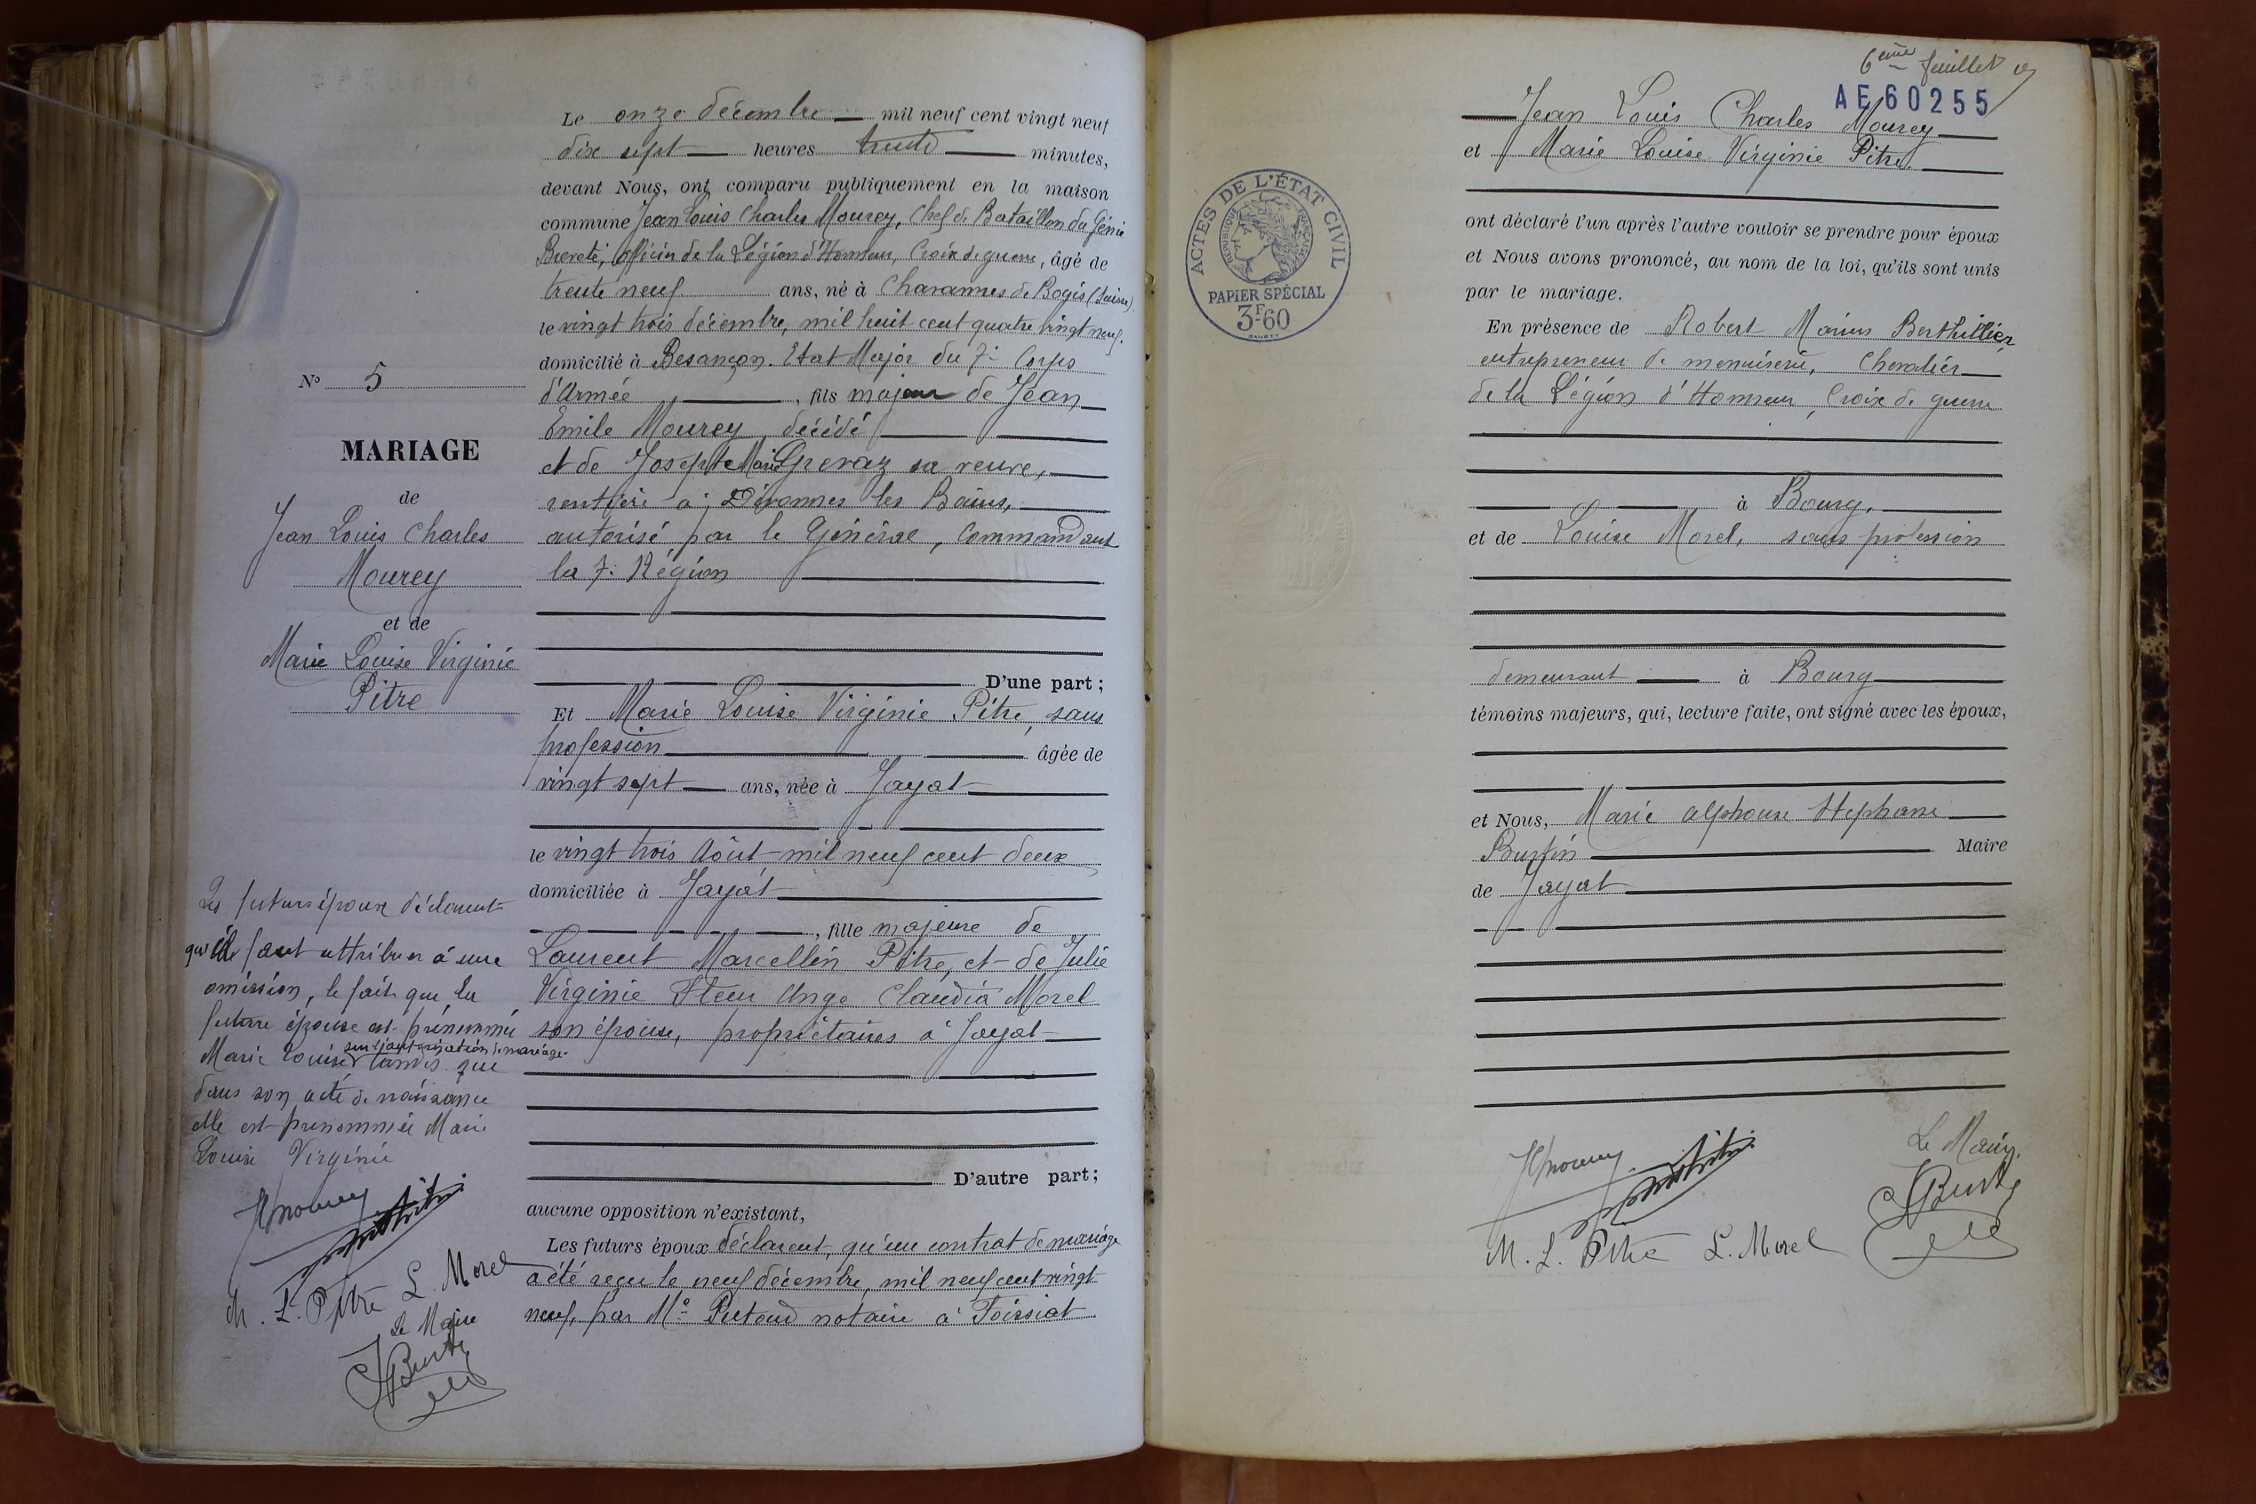 N° 5
MARIAGE
de
Jean Louis Charles
Mourey
et de
Marie Louise Virginie
Pitre
Les futurs époux déclarent
qu'il faut attribuer à une
omission, le fait que la
future épouse est prénommée
sur l'autorisation de mariage
Marie Louise tandis que
dans son acte de naissance
elle est prénommée Marie
Louise Virginie
M. L. Pitre L. Morel
Le Maire
Le onze décembre mil neuf cent vingt neuf
dix sept heures trente minutes,
devant Nous, ont comparu publiquement en la maison
commune Jean Louis Charles Mourey, Chef de Bataillon du Génie
Breveté, officier de la Légion d'Honneur, Croix de guerre, âgé de
trente neuf ans, né à Chavannes de Bogis (Suisse)
le vingt trois décembre, mil huit cent quatre vingt neuf.
domicilié à Besançon. Etat Major du 7e Corps
d'Armée, fils majeur de Jean
Emile Mourey, décédé
et de Josephte Marie sa veuve,
rentière à Divonnes les Bains,
autorisé par le Général, Commandant
la 7e Région
D'une part;
Et Marie Louise Virginie Pitre, sans
profession âgée de
vingt sept ans, née à Jayat
le vingt trois Août mil neuf cent deux
domiciliée à Jayat
, fille majeure de
Laurent Marcellin Pitre, et de Julie
Virginie Fleur Ange Claudia Morel
son épouse, propriétaires à Jayat
D'autre part;
aucune opposition n'existant,
Les futurs époux déclarent, qu'un contrat de mariage
a été reçu le neuf décembre, mil neuf cent vingt
neuf, par Me notaire à Foissiat
6ème feuillet
AE60255
Jean Louis Charles Mourey
et Marie Louise Virginie Pitre
ACTES DE L'ÉTAT CIVIL
RÉPUBLIQUE FRANÇAISE
PAPIER SPÉCIAL
3F60
ont déclaré l'un après l'autre vouloir se prendre pour époux
et Nous avons prononcé, au nom de la loi, qu'ils sont unis
par le mariage.
En présence de Robert Marius Berthillier,
entrepreneur de menuiserie, Chevalier
de la Légion d'Honneur, Croix de guerre
à Bourg.
et de Louise Morel, sans profession
demeurant à Bourg
témoins majeurs, qui, lecture faite, ont signé avec les époux,
et Nous, Marie Alphonse Stephane
Burtin Maire
de Jayat
Le Maire,
M. L. Pitre L. Morel